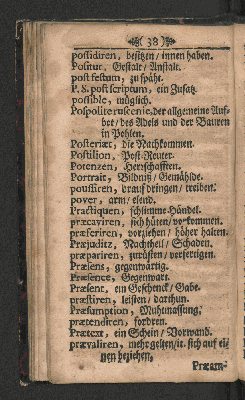 ( 38 )
possidiren, besitzen / innen haben.
Positur, Gestalt / Anstalt.
post festum, zu späht.
P. S. post scriptum, ein Zusatz.
possible, möglich.
Pospolite ruscenie, der allgemeine Auff-
bot / des Adels und der Bauren
in Pohlen.
Posteriæt, die Nachkommen.
Postilion, Post-Reuter.
Potenzen, Herrschafften.
Portrait, Bildnuß / Gemählde.
poussiren, drauf dringen / treiben.
pover, arm / elend.
Practiquen, schlimme Händel.
præcaviren, sich hüten / vorkommen.
præferiren, vorziehen / höher halten.
Præjuditz, Nachtheil / Schaden.
præpariren, zurüsten / verfertigen.
Præsens, gegenwärtig.
Præsence, Gegenwart.
Præsent, ein Geschenck / Gabe.
præstiren, leisten / darthun.
Præsumption, Muhtmassung.
prætendiren, fordren.
Prætext, ein Schein / Vorwand.
prævaliren, mehr gelten / it. sich auf ei-
nen beziehen.
Præam-